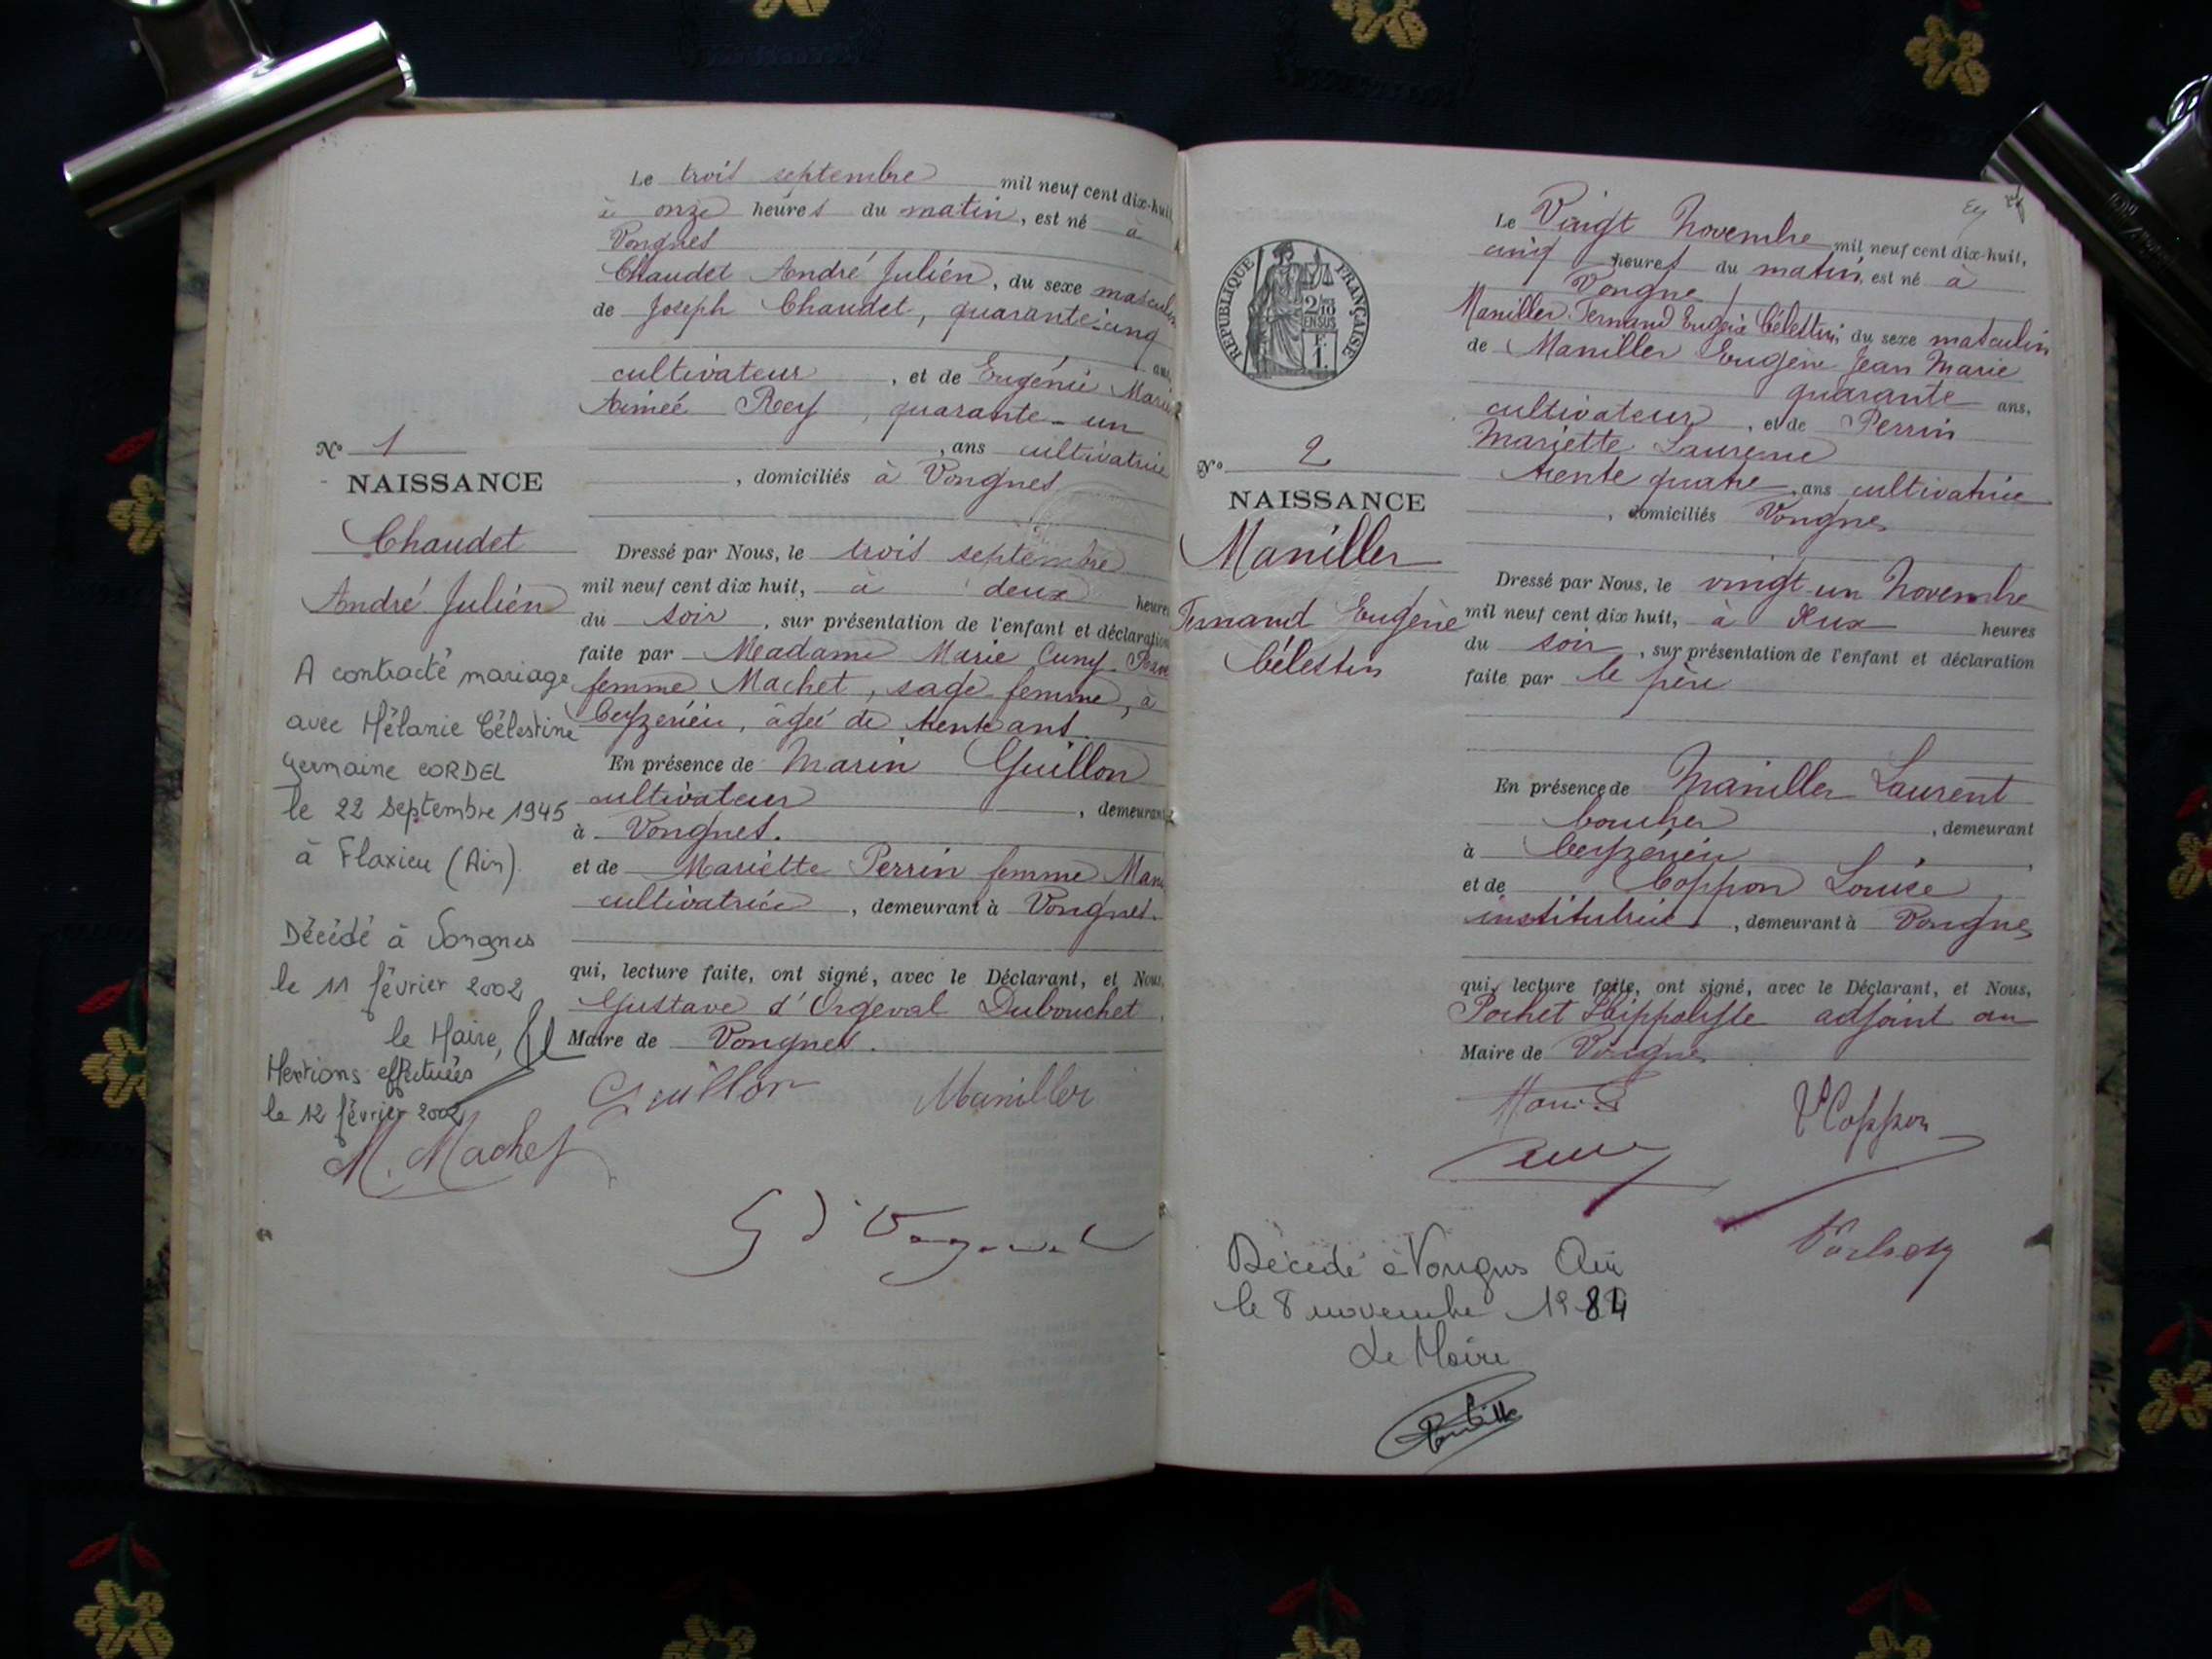 Le trois septembre mil neuf cent dix-huit
à onze heures du matin, est né à
Vongnes
Chaudet André Julien, du sexe masculin
de Joseph Chaudet, quarante-cinq
ans,
cultivateur, et de Eugénie Marie
Aimée Rey, quarante-un
, ans cultivatrice
, domiciliés à Vongnes
N° 1
NAISSANCE
Chaudet
André Julien
A contracté mariage
avec Mélanie Célestine
Germaine CORDEL
le 22 septembre 1945
à Flaxieu (Ain).
Décédé à Vongnes
le 11 février 2002
le Maire,
Mentions effectuées
le 12 février 2002
Dressé par Nous, le trois septembre
mil neuf cent dix huit, à deux heures
du soir, sur présentation de l'enfant et déclaration
faite par Madame Marie Cuny
femme Machet, sage femme, à
Ceyzérieu, âgée de trente ans.
En présence de Marin Guillon
cultivateur, demeurant
à Vongnes.
et de Mariette Perrin femme Mani
cultivatrice, demeurant à Vongnes.
qui, lecture faite, ont signé, avec le Déclarant, et Nous,
Gustave d'Orgeval Dubouchet,
Maire de Vongnes.
Guillon Maniller
M. Machet
G d'Orgeval
RÉPUBLIQUE FRANÇAISE
2/10
EN SUS
F.
1.
Le Vingt Novembre mil neuf cent dix-huit,
cinq heures du matin, est né à
Vongnes
Maniller Fernand Eugène Célestin, du sexe masculin
de Maniller Eugène Jean Marie
quarante ans,
cultivateur, et de Perrin
Mariette Laurence
trente quatre, ans cultivatrice
, domiciliés Vongnes
N° 2
NAISSANCE
Maniller
Fernand Eugène
Célestin
Dressé par Nous, le vingt-un Novembre
mil neuf cent dix huit, à deux heures
du soir, sur présentation de l'enfant et déclaration
faite par le père
En présence de Maniller Laurent
boucher, demeurant
à Ceyzérieu,
et de Coppon Louise
institutrice, demeurant à Vongnes
qui, lecture faite, ont signé, avec le Déclarant, et Nous,
Pochet Hippolyte adjoint au
Maire de Vongnes
L Coppon
Pochet
Décédé à Vongnes Ain
le 8 novembre 1984
Le Maire